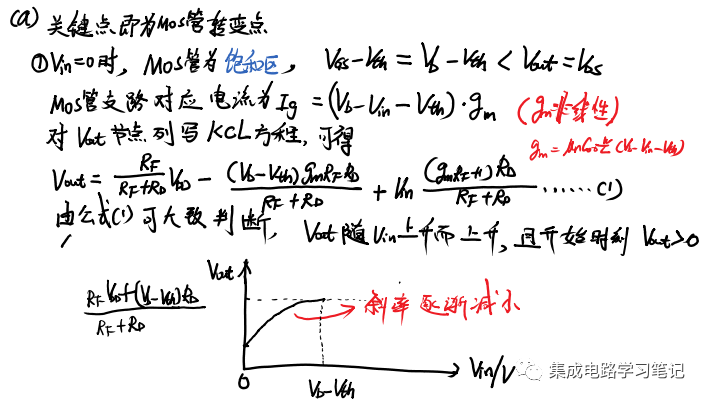 (a) 关键点即为Mos管转变点
①Vin=0时, Mos管为饱和区, VGS-Vth = Vb-Vth < Vout = VDS
Mos管支路对应电流为Ig = (Vb-Vin-Vth)·gm (gm非线性)
对Vout节点列写KCL方程,可得
gm = μnCox W/L (Vb-Vin-Vth)
Vout = RF/(RF+RD) VDD - (Vb-Vth)gmRFRD/(RF+RD) + Vin (gmRF+1)RD/(RF+RD) ……(1)
由公式(1)可大致判断, Vout随Vin上升而上升,且开始时刻Vout>0
Vout
(RFVDD+(Vb-Vth)RD)/(RF+RD)
斜率逐渐减小
0
Vb-Vth
Vin/V
集成电路学习笔记